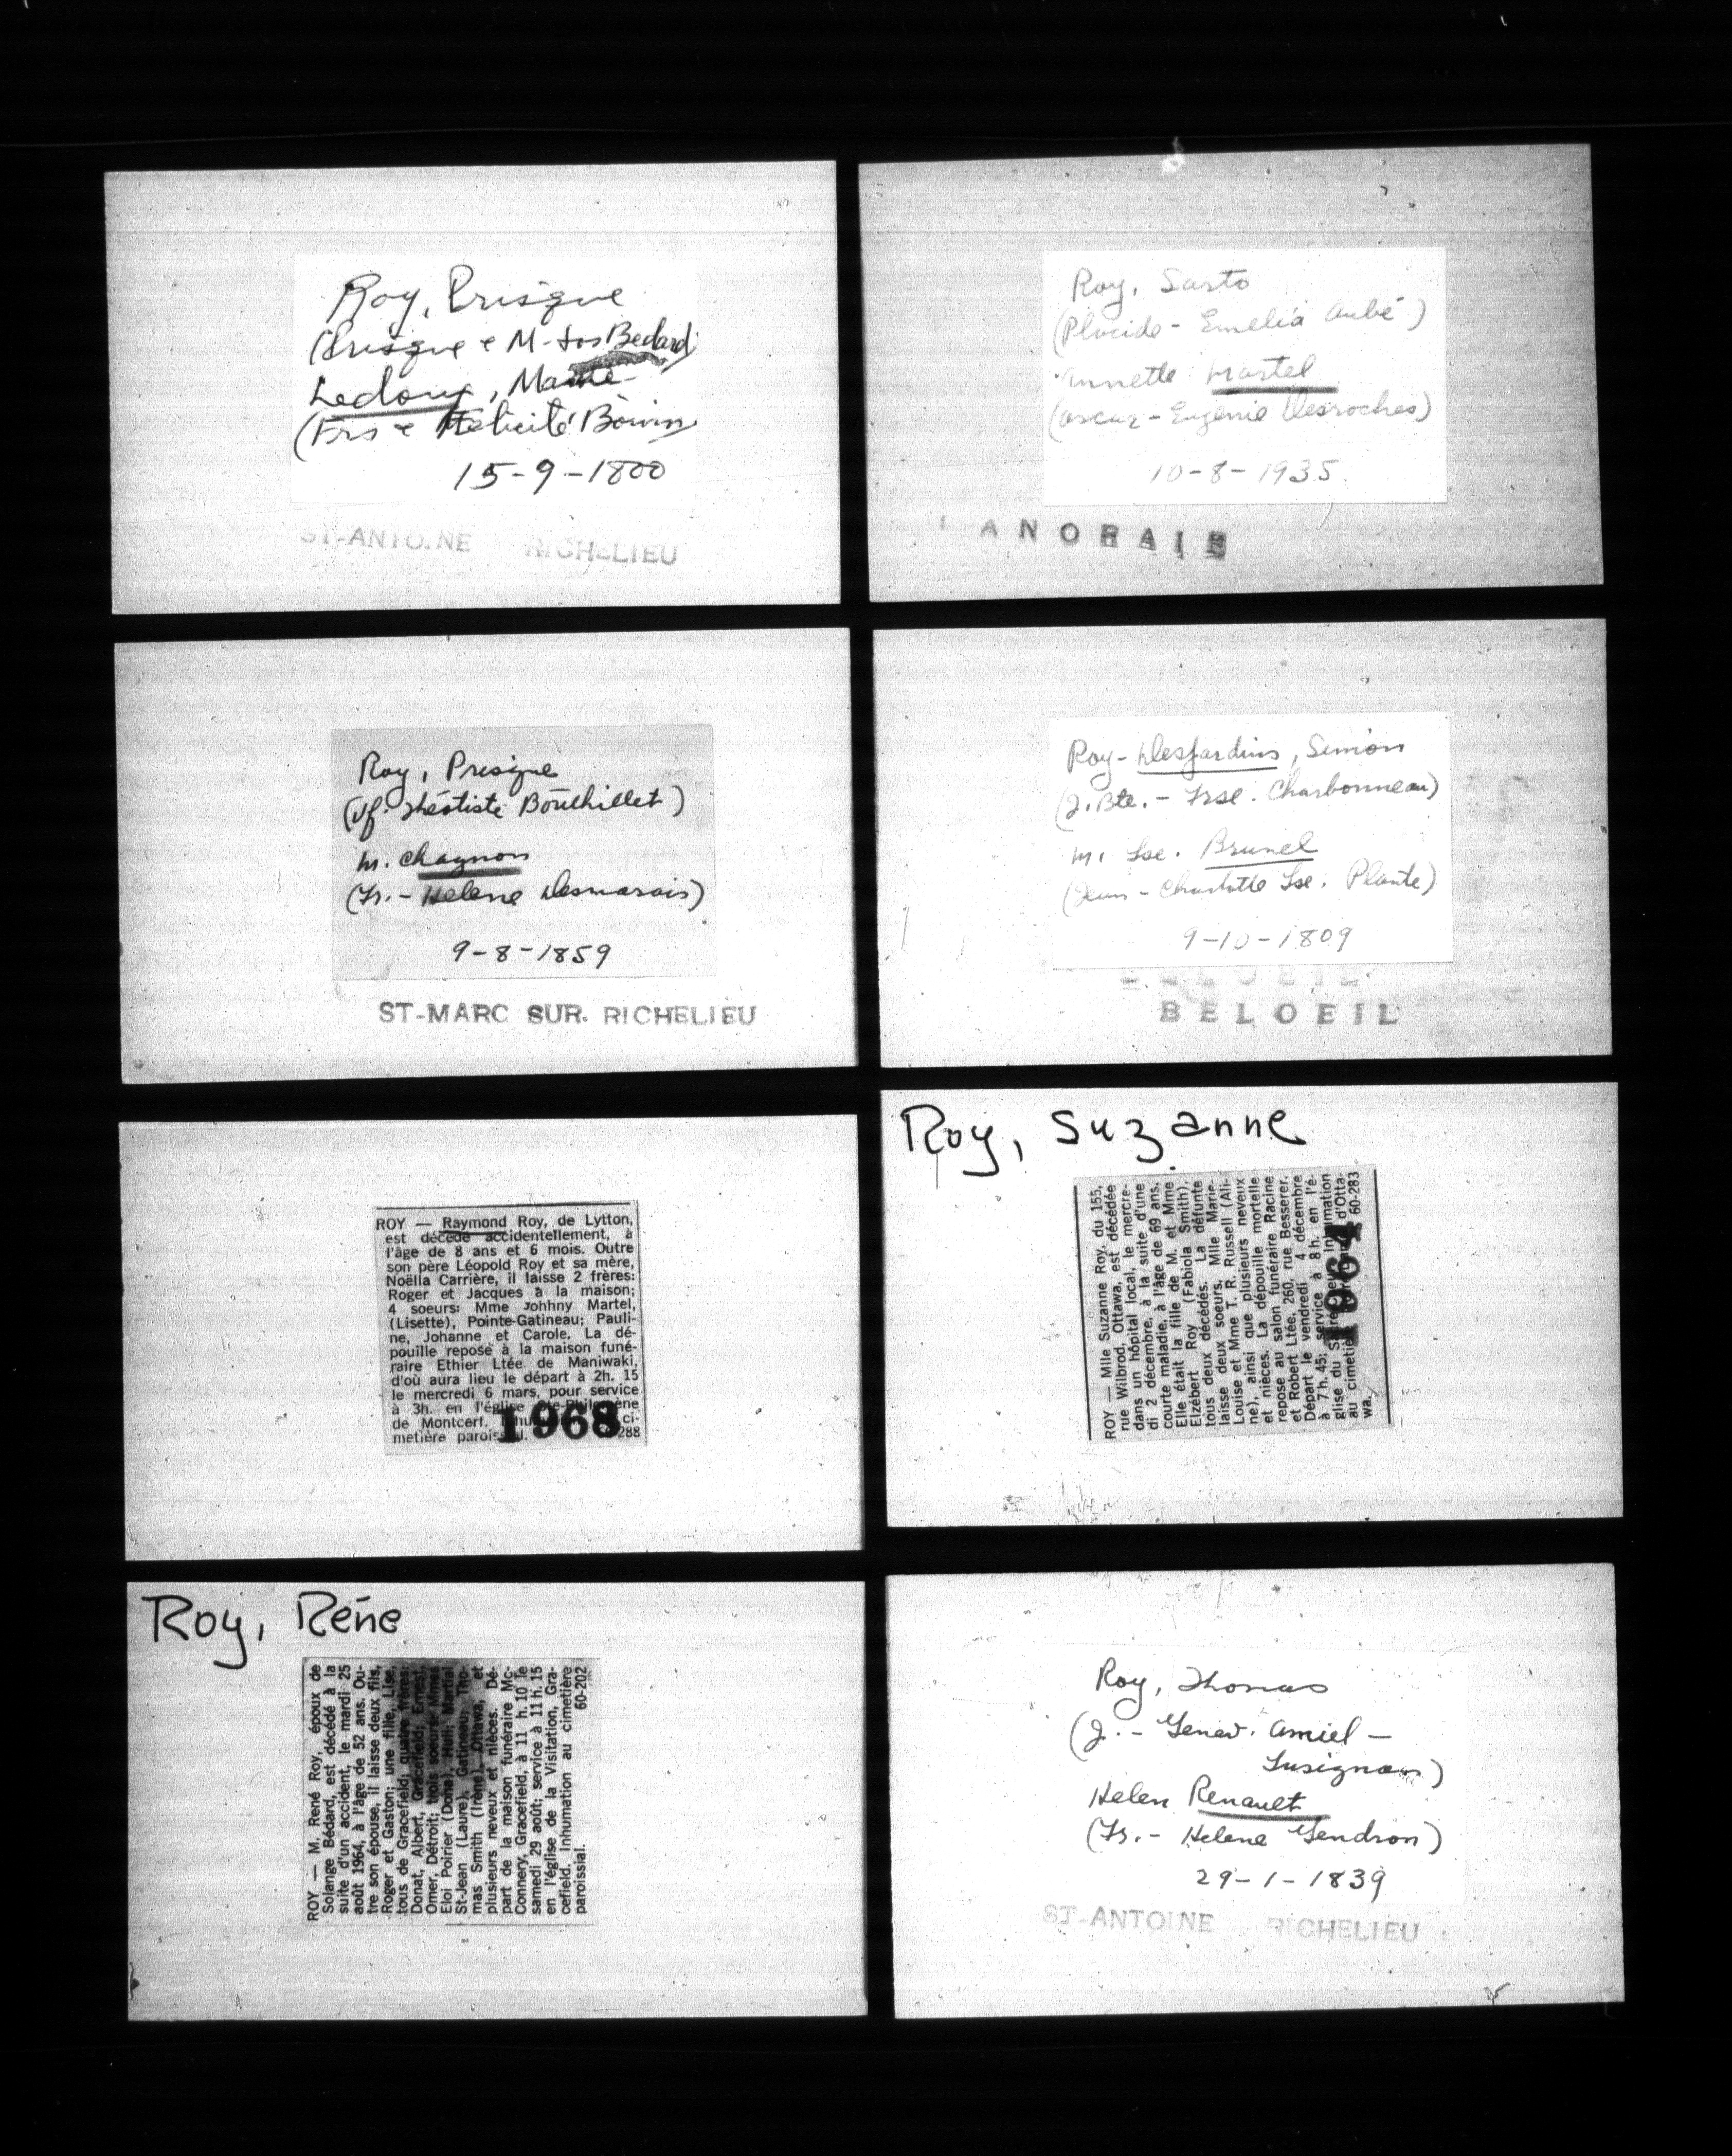 Roy, Prisque
(Prisque e M-Jos Bedard)
Ledoux, Marie
(Frs e Félicité Boivin)
15-9-1800
ST-ANTOINE RICHELIEU
Roy, Sarto
(Placide - Emelia Aubé)
Annette Martel
(Oscar - Eugenie Desroches)
10-8-1935
LANORAIE
Roy, Presique
(Jf. Théotiste Bouthillet)
m. Chagnon
(Fr. - Helene Desmarais)
9-8-1859
ST-MARC SUR. RICHELIEU
Roy-Desjardins, Simon
(J.Bte. - Frse. Charbonneau)
m. Lse. Brunel
(Jean - Charlotte Lse. Plante)
9-10-1809
BELOEIL
BELOEIL
ROY — Raymond Roy, de Lytton,
est décédé accidentellement, à
l'âge de 8 ans et 6 mois. Outre
son père Léopold Roy et sa mère,
Noëlla Carrière, il laisse 2 frères:
Roger et Jacques à la maison;
4 soeurs: Mme Johhny Martel,
(Lisette), Pointe-Gatineau; Pauli-
ne, Johanne et Carole. La dé-
pouille repose à la maison funé-
raire Ethier Ltée de Maniwaki,
d'où aura lieu le départ à 2h. 15
le mercredi 6 mars, pour service
à 3h. en l'église Ste-Philomène
de Montcerf. ci-
metière paroissial. 288
1968
Roy, Suzanne
ROY — Mlle Suzanne Roy, du 155,
rue Wilbrod, Ottawa, est décédée
dans un hôpital local, le mercre-
di 2 décembre, à la suite d'une
courte maladie, à l'âge de 69 ans.
Elle était la fille de M. et Mme
Elzébert Roy (Fabiola Smith),
tous deux décédés. La défunte
laisse deux soeurs, Mlle Marie-
Louise et Mme T. R. Russell (Ali-
ne), ainsi que plusieurs neveux
et nièces. La dépouille mortelle
repose au salon funéraire Racine
et Robert Ltée, 260, rue Besserer.
Départ le vendredi 4 décembre
à 7 h. 45; service à 8 h. en l'é-
glise du Inhumation
au cimetière d'Otta-
wa. 60-283
1964
Roy, Réne
ROY — M. René Roy, époux de
Solange Bédard, est décédé à la
suite d'un accident, le mardi 25
août 1964, à l'âge de 52 ans. Ou-
tre son épouse, il laisse deux fils,
Roger et Gaston; une fille, Lise,
tous de Gracefield; quatre frères:
Donat, Albert, Gracefield; Ernest,
Omer, Détroit; trois soeurs Mmes
Eloi Poirier (Dona), Hull; Martial
St-Jean (Laure), Gatineau; Tho-
mas Smith (Irène), Ottawa, et
plusieurs neveux et nièces. Dé-
part de la maison funéraire Mc-
Connery, Gracefield, à 11 h. 10 le
samedi 29 août; service à 11 h. 15
en l'église de la Visitation, Gra-
cefield. Inhumation au cimetière
paroissial. 60-202
Roy, Thomas
(J. - Genev. Amiel -
Lusignan)
Helen Renault
(Fr. - Helene Gendron)
29-1-1839
ST-ANTOINE RICHELIEU